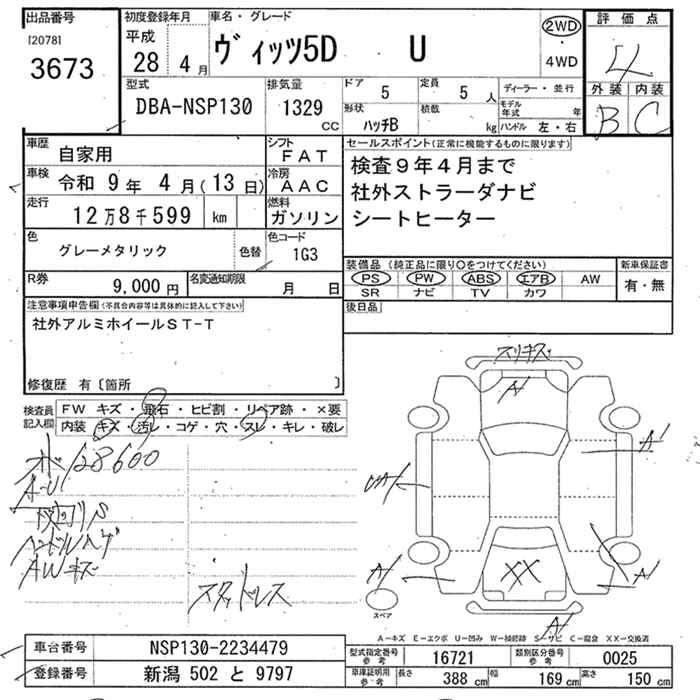 出品番号
[2078]
3673
初度登録年月
平成
28 4 月
車名・グレード
ヴィッツ5D U
2WD
・
4WD
評価点
4
外装 内装
B C
型式
DBA-NSP130
排気量
1329
CC
ドア 5
定員 5 人
形状 ハッチB
積数 kg
ディーラー・並行
モデル年式 年
ハンドル 左・右
車歴 自家用
シフト FAT
車検 令和 9 年 4 月(13日)
冷房 AAC
走行 12万8千599 km
燃料 ガソリン
色 グレーメタリック
色替
色コード 1G3
R券 9,000 円
名変通知期限 月 日
セールスポイント(正常に機能するものに限ります)
検査9年4月まで
社外ストラーダナビ
シートヒーター
装備品(純正品に限り○をつけてください)
PS PW ABS エアB AW
SR ナビ TV カワ
新車保証書
有・無
後日品
注意事項申告欄(不具合内容等は具体的に記入して下さい)
社外アルミホイールST-T
修復歴 有〔箇所 〕
検査員
記入欄
FW キズ・飛石・ヒビ割・リペア跡・×要
内装・キズ・汚レ・コゲ・穴・スレ・キレ・破レ
128600
A-U
ハンドルハゲ
AWキズ
スタッドレス
スリキズ
A
A
UA
A
XX
A
A
スペア
A－キズ E－エクボ U－凹み W－補修跡 S－サビ C－腐食 XX－交換済
車台番号 NSP130-2234479
登録番号 新潟 502 と 9797
型式指定番号
参考
16721
類別区分番号
参考
0025
車庫証明用
参考
長さ 388 cm
幅 169 cm
高さ 150 cm